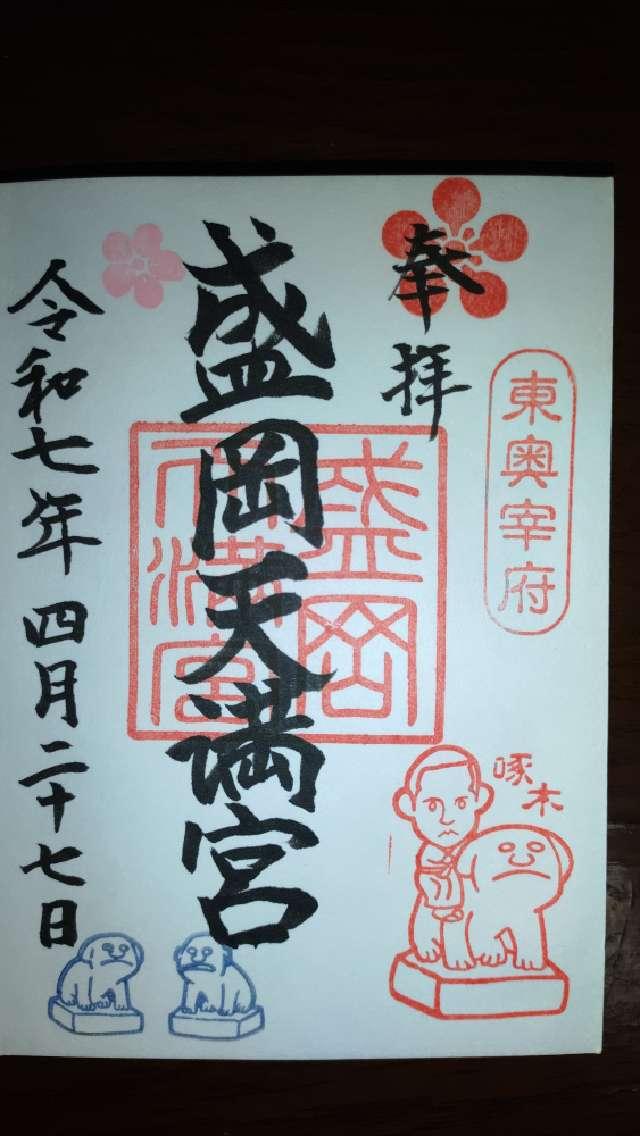 東奥宰府
奉拝
啄木
盛岡天満宮
盛岡
天満宮
令和七年四月二十七日